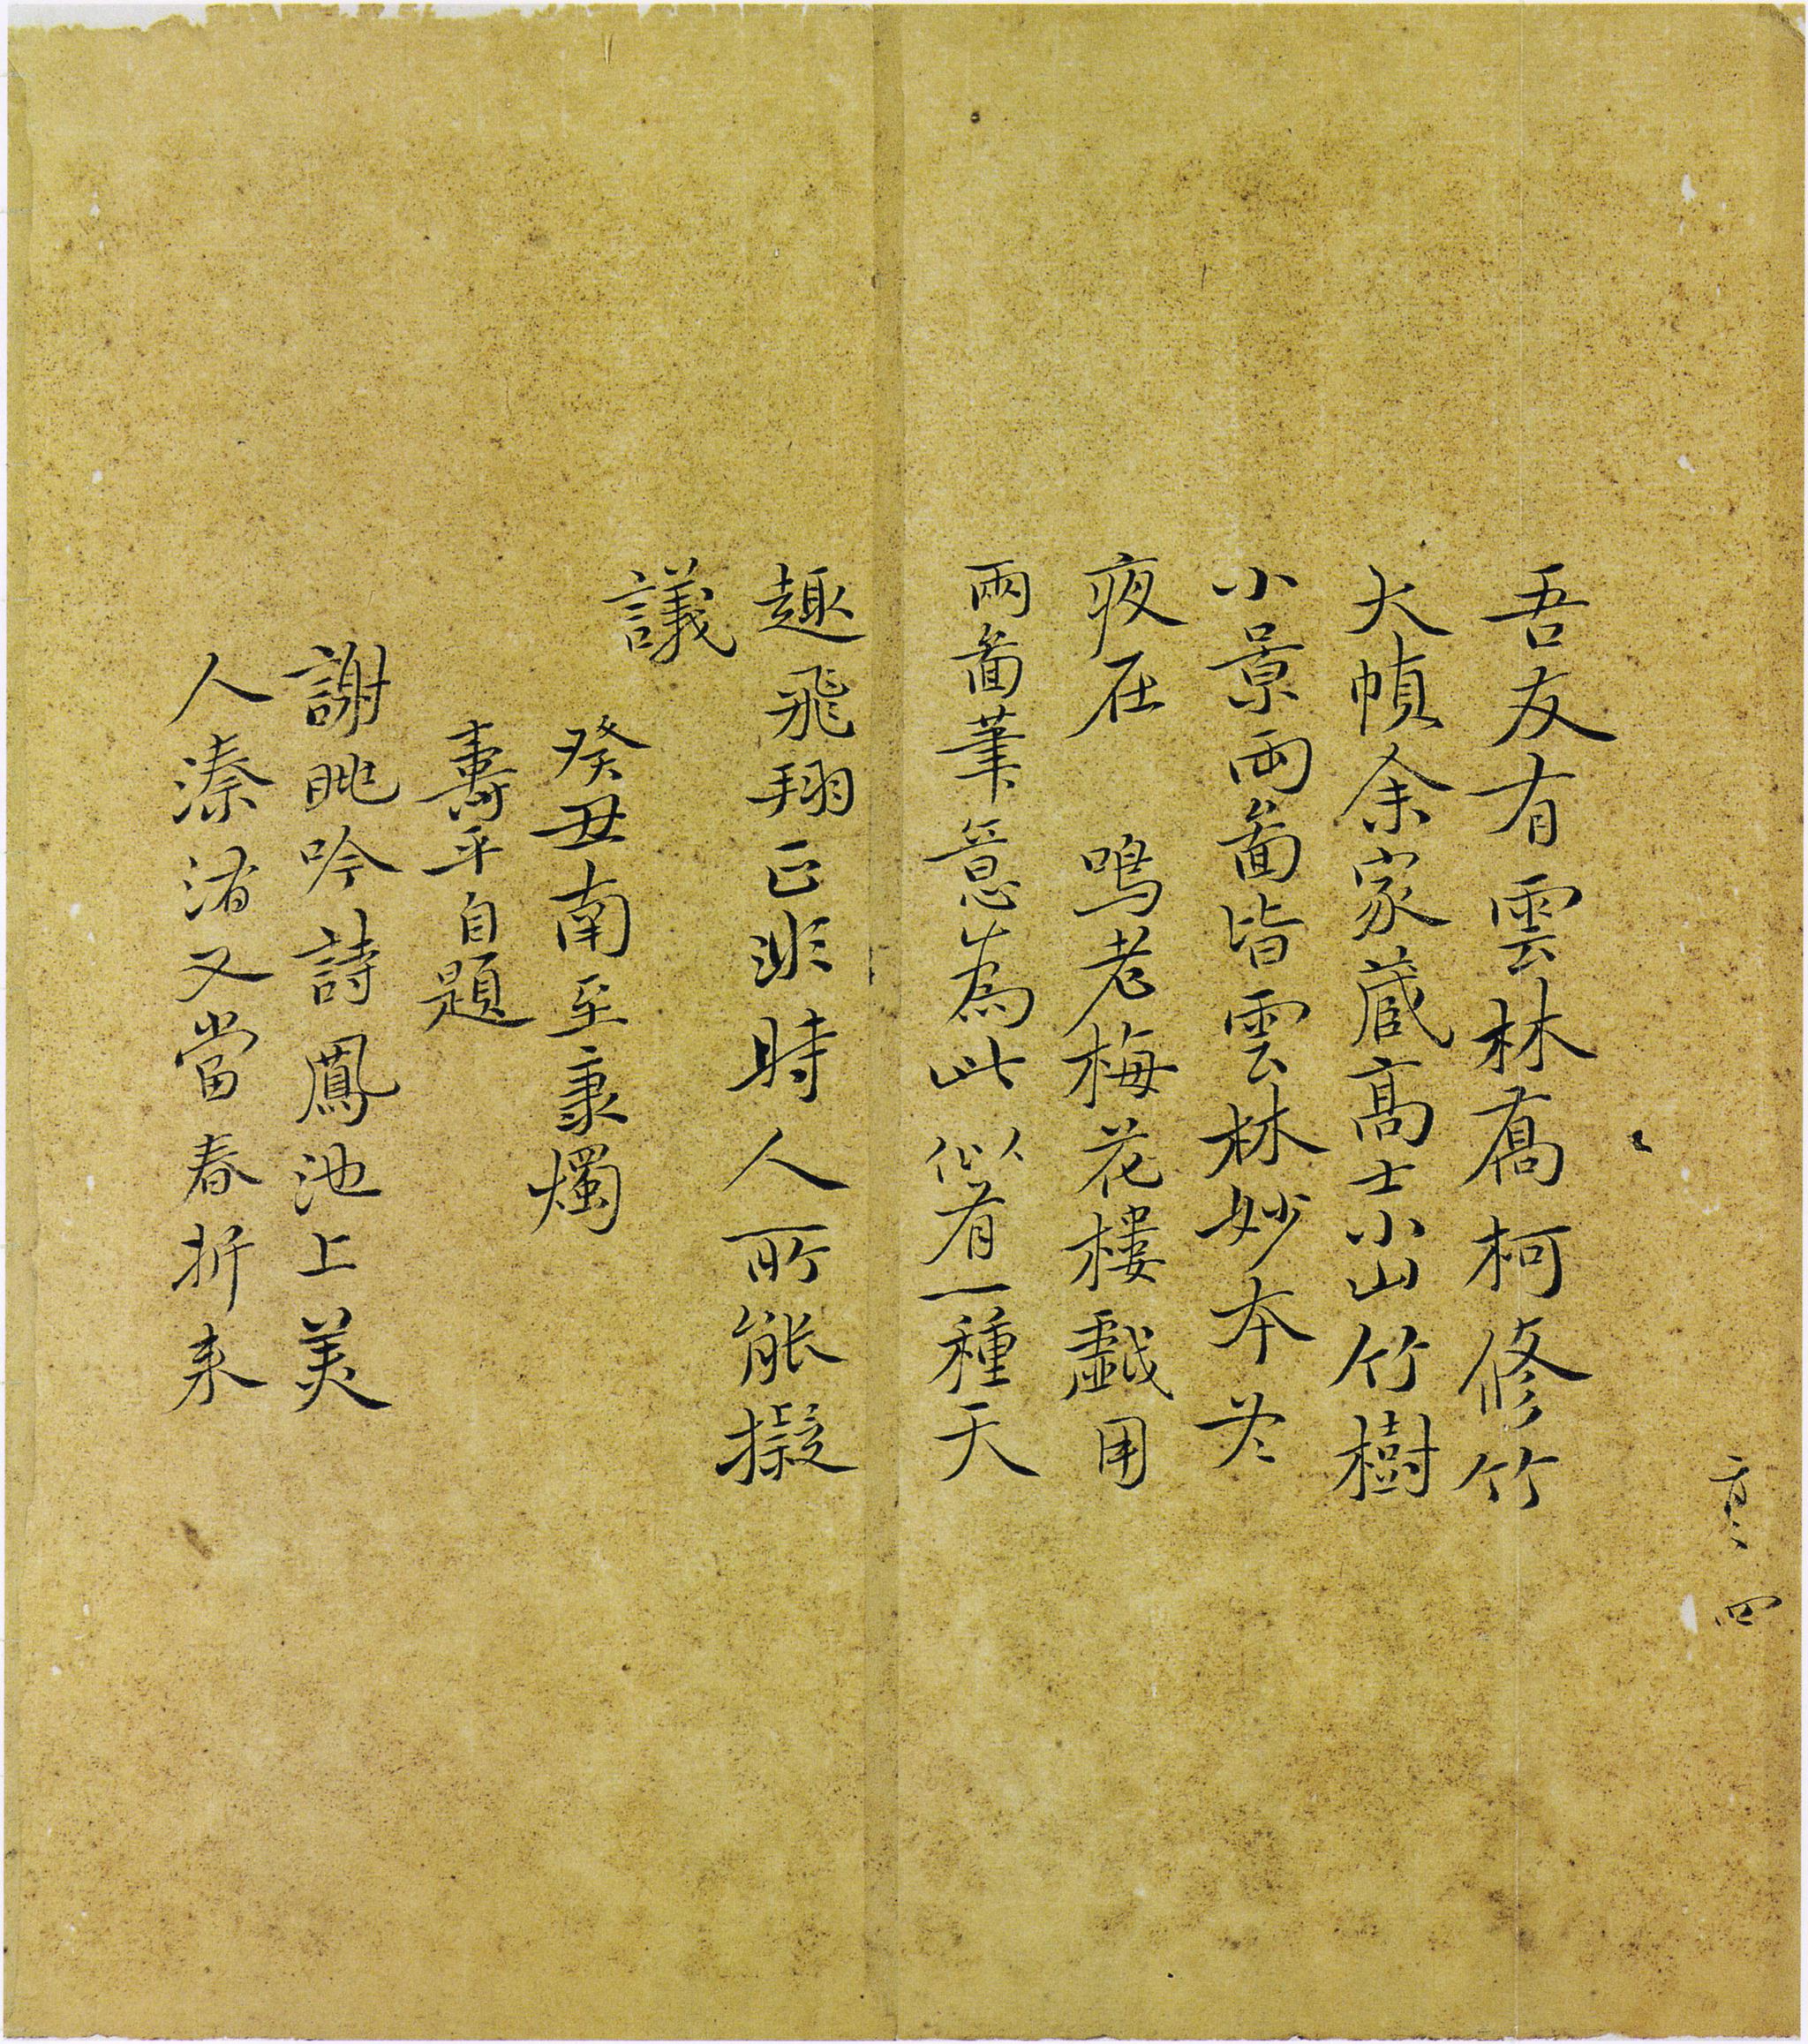 吾友有雲林喬柯修竹
大幀余家蔵髙士小山竹樹
小景兩啚皆雲林妙本茶
夜在 鳴老梅花樓戱用
兩啚筆意為此似有一種天
趣飛翔正非時人所能擬
議
癸丑南至秉燭
壽平自題
謝眺吟詩鳳池上美
人溱洧又當春折来